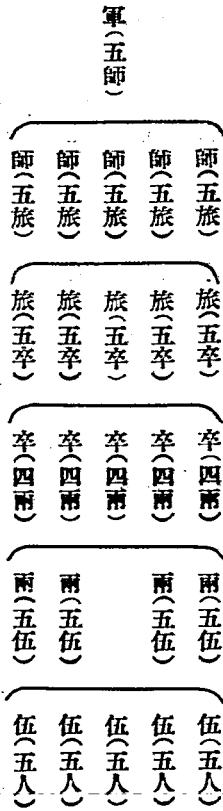 軍(五師)
師(五旅)
師(五旅)
師(五旅)
師(五旅)
師(五旅)
旅(五卒)
旅(五卒)
旅(五卒)
旅(五卒)
旅(五卒)
卒(四兩)
卒(四兩)
卒(四兩)
卒(四兩)
卒(四兩)
兩(五伍)
兩(五伍)
兩(五伍)
兩(五伍)
伍(五人)
伍(五人)
伍(五人)
伍(五人)
伍(五人)